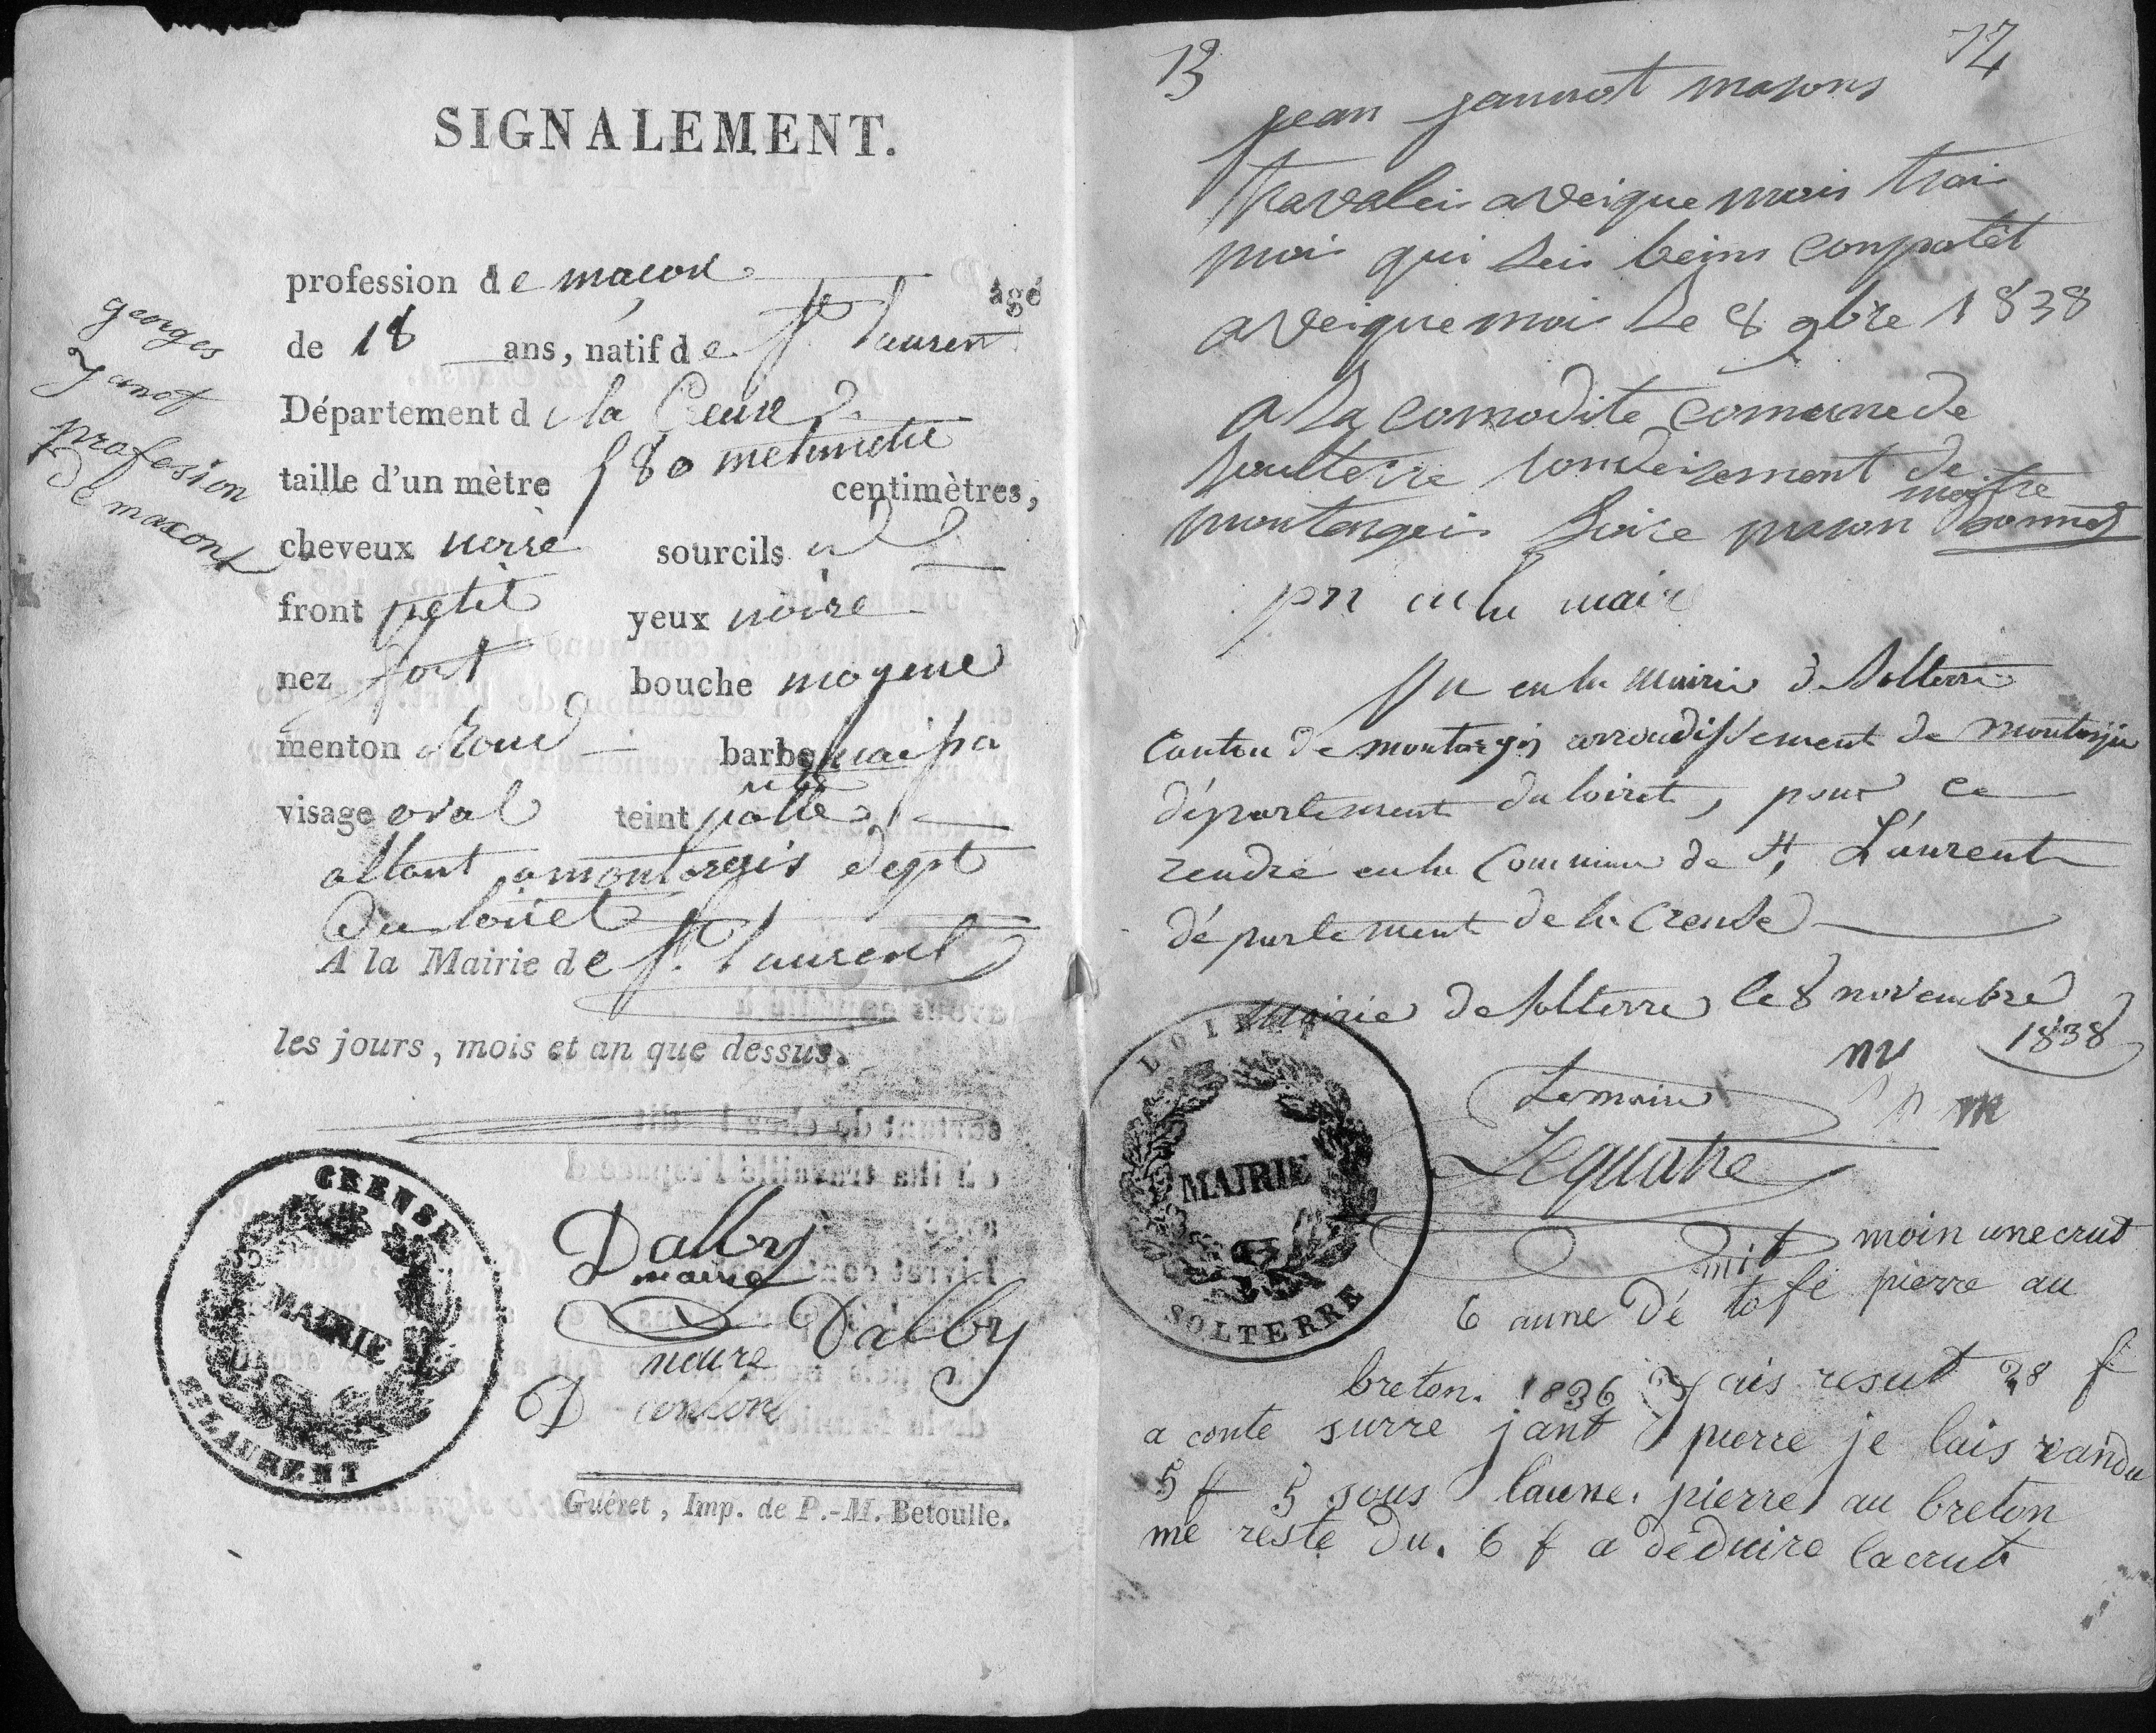 SIGNALEMENT.
profession de maçon
agé
de 18 ans, natif de St. Laurent
Département de la Creuse
taille d'un mètre 580 metimetre
centimètres,
cheveux noire sourcils id
front petit yeux noire
nez fort bouche moyene
menton rond barbe naipa
visage oval teint palle
allant a montargis dept
Du loiret
A la Mairie de St. Laurent
les jours, mois et an que dessus.
georges
Janot
profesion
de maxont
CREUSE
MAIRIE
ST LAURENT
Dalby
maire
Dalby
maire
Guéret, Imp. de P.-M. Betoulle.
13
14
jean jannot masons
travalei aveique mois trai
moi qui sei beins conpotêt
aveique moi le 8 9bre 1838
a la comodite comune de
soulterre rondeisement de
montargeis loire mason maitre bonnet
pn en la maire
Vu en la mairie de Solterre
Canton de montargis arrondissement de montargis
département du loiret, pour ce
rendre en la Commune de St Laurent
département de la Creuse
Mairie de Solterre le 8 novembre
1838
Le maire
Lequatre
LOIRET
MAIRIE
SOLTERRE
moin une crut
6 aune dé tofe pierre au
breton. 1836 J ais resut 28 f
a conte surre jant pierre je lais randu
5 f 5 sous laune. pierre au breton
me reste du. 6 f a deduire la crut